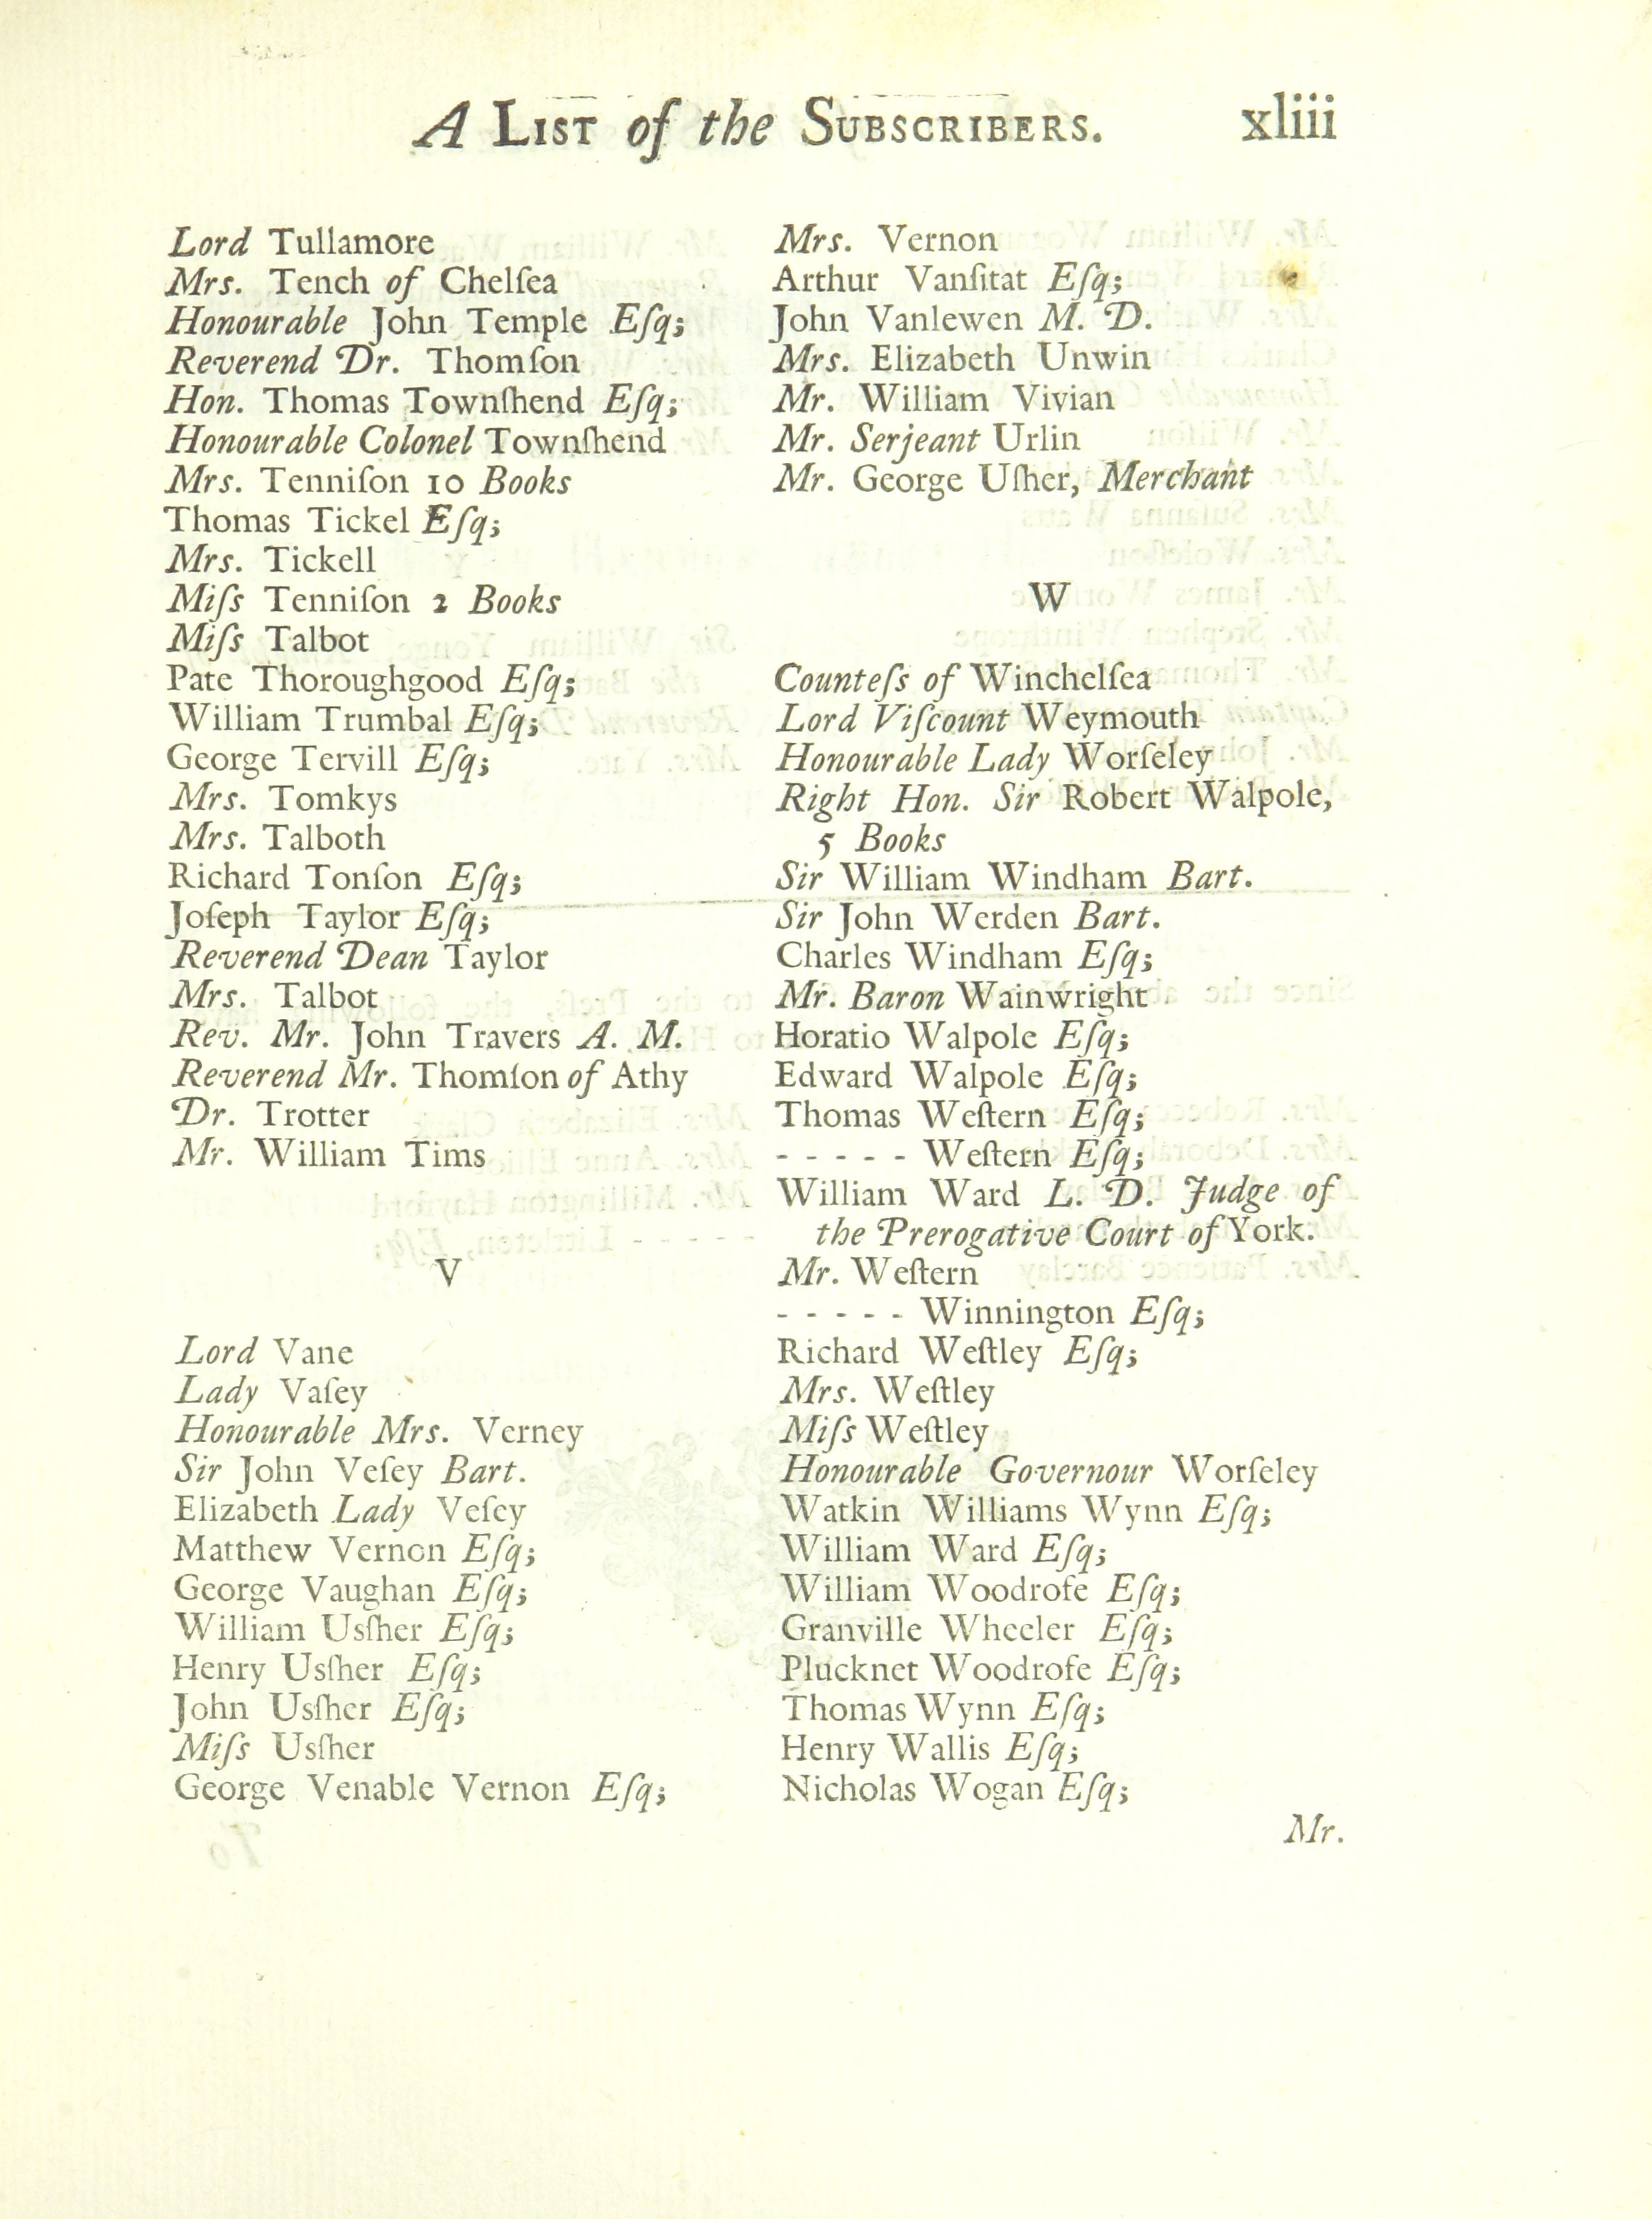 A LIST of the SUBSCRIBERS. xliii
Lord Tullamore
Mrs. Tench of Chelſea
Honourable John Temple Eſq;
Reverend Dr. Thomſon
Hon. Thomas Townſhend Eſq;
Honourable Colonel Townſhend
Mrs. Tenniſon 10 Books
Thomas Tickel Eſq;
Mrs. Tickell
Miſs Tenniſon 2 Books
Miſs Talbot
Pate Thoroughgood Eſq;
William Trumbal Eſq;
George Tervill Eſq;
Mrs. Tomkys
Mrs. Talboth
Richard Tonſon Eſq;
Joſeph Taylor Eſq;
Reverend Dean Taylor
Mrs. Talbot
Rev. Mr. John Travers A. M.
Reverend Mr. Thomſon of Athy
Dr. Trotter
Mr. William Tims
V
Lord Vane
Lady Vaſey
Honourable Mrs. Verney
Sir John Veſey Bart.
Elizabeth Lady Veſey
Matthew Vernon Eſq;
George Vaughan Eſq;
William Usſher Eſq;
Henry Usſher Eſq;
John Usſher Eſq;
Miſs Usſher
George Venable Vernon Eſq;
Mrs. Vernon
Arthur Vanſitat Eſq;
John Vanlewen M. D.
Mrs. Elizabeth Unwin
Mr. William Vivian
Mr. Serjeant Urlin
Mr. George Uſher, Merchant
W
Counteſs of Winchelſea
Lord Viſcount Weymouth
Honourable Lady Worſeley
Right Hon. Sir Robert Walpole,
5 Books
Sir William Windham Bart.
Sir John Werden Bart.
Charles Windham Eſq;
Mr. Baron Wainwright
Horatio Walpole Eſq;
Edward Walpole Eſq;
Thomas Weſtern Eſq;
- - - - - Weſtern Eſq;
William Ward L. D. Judge of
the Prerogative Court of York.
Mr. Weſtern
- - - - - Winnington Eſq;
Richard Weſtley Eſq;
Mrs. Weſtley
Miſs Weſtley
Honourable Governour Worſeley
Watkin Williams Wynn Eſq;
William Ward Eſq;
William Woodrofe Eſq;
Granville Wheeler Eſq;
Plucknet Woodrofe Eſq;
Thomas Wynn Eſq;
Henry Wallis Eſq;
Nicholas Wogan Eſq;
Mr.